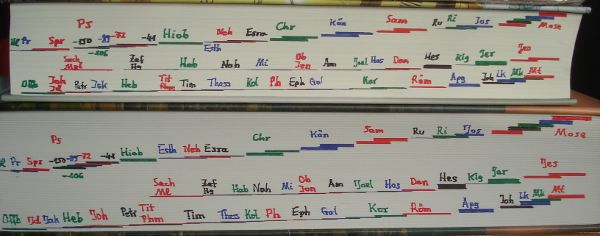 Ps
Pr Spr -150 -89 -72 -41 Hiob Neh Esra Chr Kön Sam Ru Ri Jos Mose
-106 Esth
Sach Mal Zef Hg Hab Nah Mi Ob Jon Am Joel Hos Dan Hes Klg Jer Jes
Offb Joh Jd Petr Jak Heb Tit Phm Tim Thess Kol Ph Eph Gal Kor Röm Apg Joh Lk Mk Mt
Ps
Pr Spr -150 -89 -72 -41 Hiob Esth Neh Esra Chr Kön Sam Ru Ri Jos Mose
-106
Sach Ml Zef Hg Hab Nah Mi Ob Jon Am Joel Hos Dan Hes Klg Jer Jes
Offb Jd Jak Heb Joh Petr Tit Phm Tim Thess Kol Ph Eph Gal Kor Röm Apg Joh Lk Mk Mt